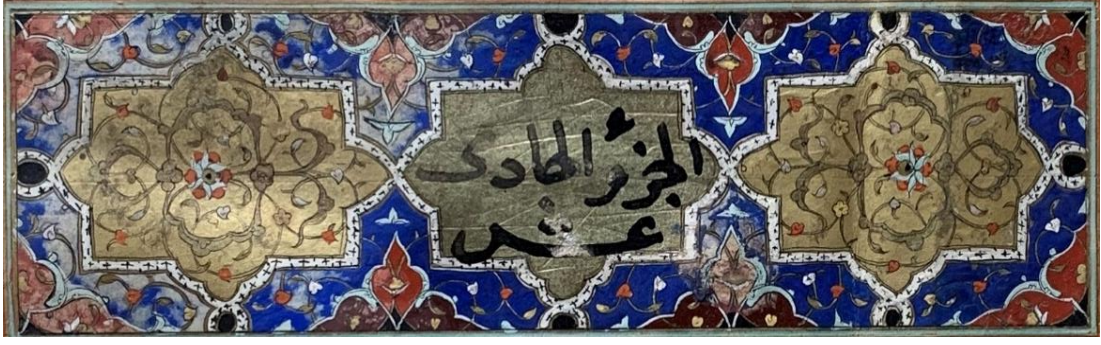 الجزؤ الحادى
عشر